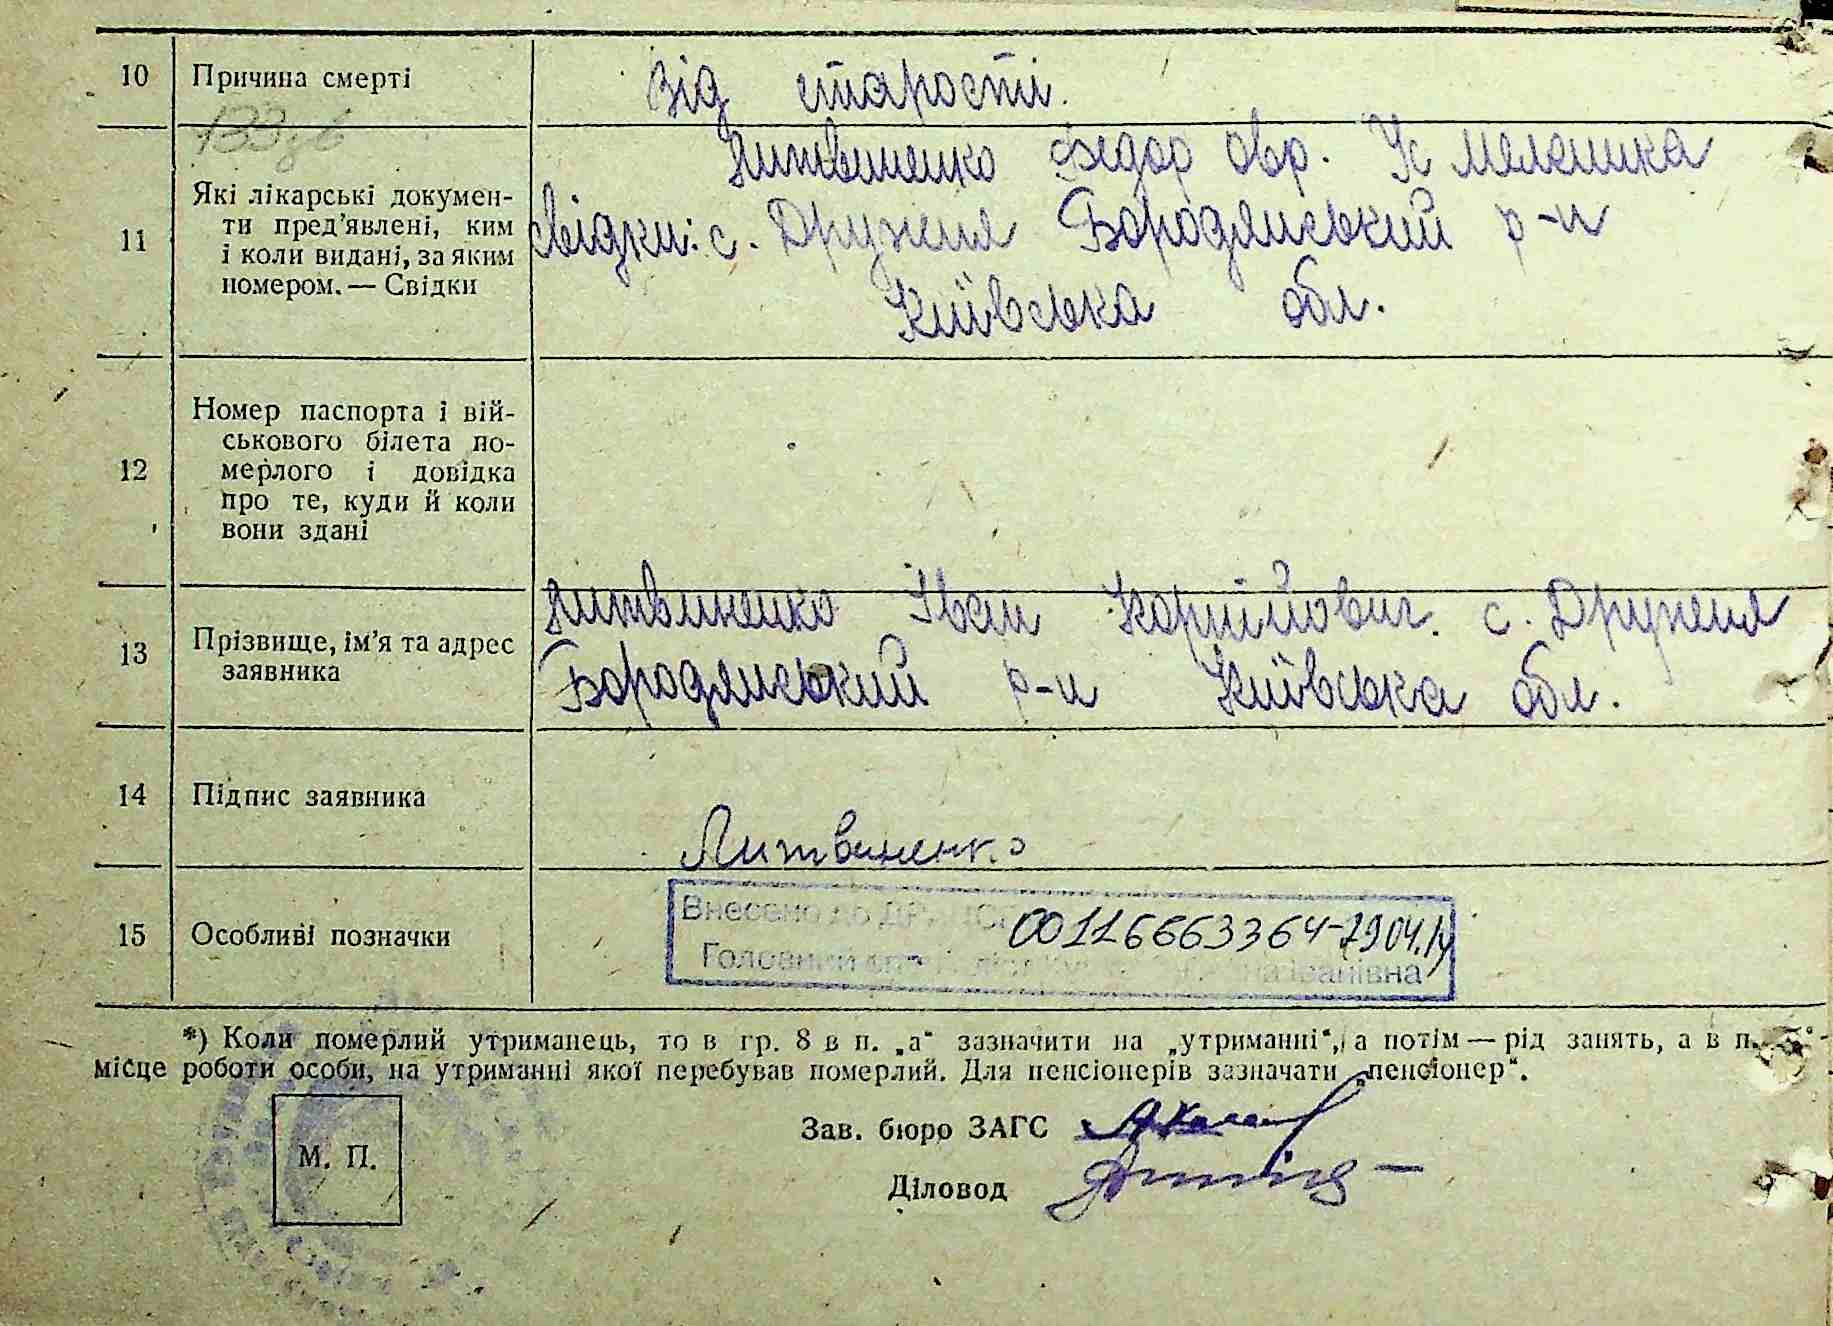 10 Причина смерті Від старости.
Литвиненко Федор Овр. К Мелашка
11 Які лікарські докумен-
ти пред'явлені, ким
і коли видані, за яким
номером. — Свідки
свідки: с. Дружня Бородянський р-н
Київська обл.
12 Номер паспорта і вій-
ськового білета по-
мерлого і довідка
про те, куди й коли
вони здані
13 Прізвище, ім'я та адрес
заявника
Литвиненко Іван Корнійович. с. Дружня
Бородянський р-н Київська обл.
14 Підпис заявника
Литвиненко
15 Особливі позначки
Внесено до 00116663364-
Головний Іванівна
*) Коли померлий утриманець, то в гр. 8 в п. „а“ зазначити на „утриманні“, а потім — рід занять, а в п.
місце роботи особи, на утриманні якої перебував померлий. Для пенсіонерів зазначати „пенсіонер“.
Зав. бюро ЗАГС
М. П.
Діловод